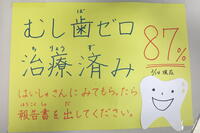 むし歯ゼロ
治療済み
87%
5/14 現在
はいしゃさんにみてもらったら
報告書を出してください。